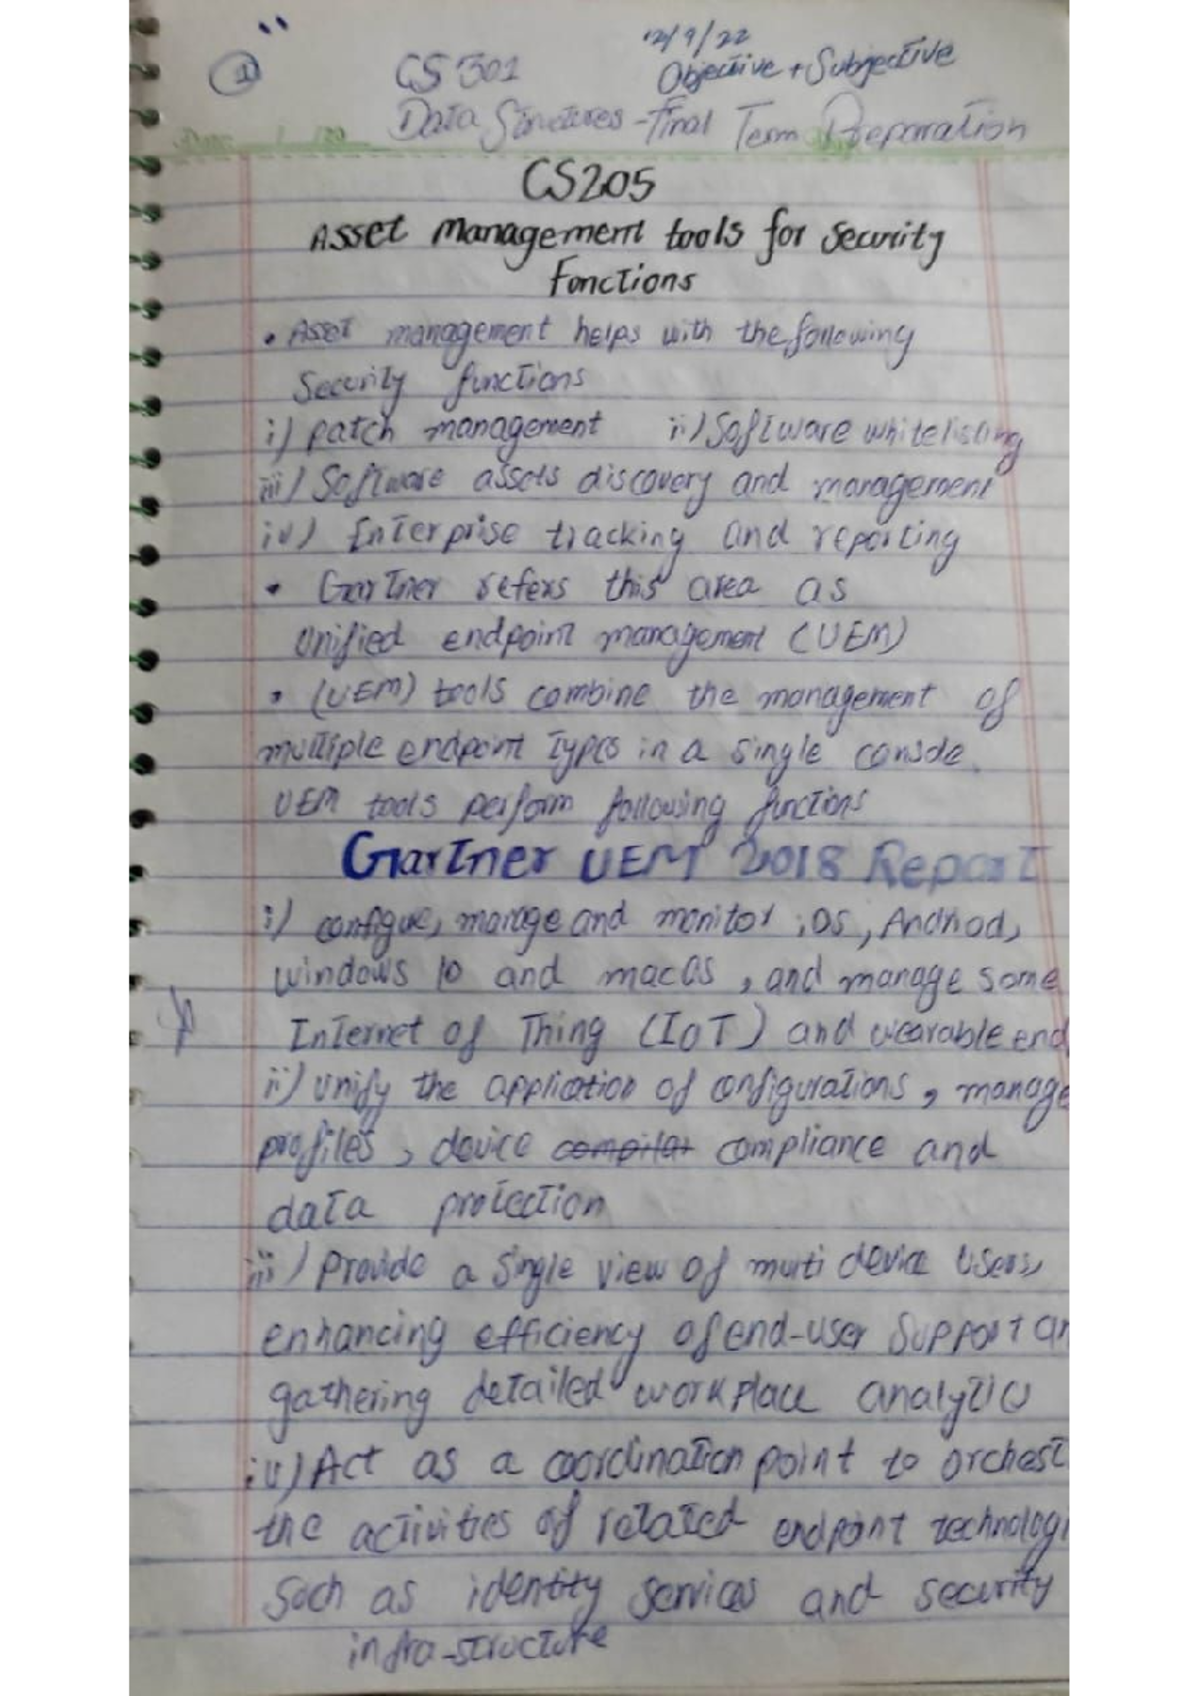 ①
12/9/22
CS 301 Objective + Subjective
Data Structures - Final Term Preparation
CS205
Asset management tools for Security
Fonctions
• Asset management helps with the following
Security functions
i) patch management ii) Software whitelisting
iii) Software assets discovery and management
iv) Enterprise tracking and reporting
• Gartner refers this area as
Unified endpoint management (UEM)
• (UEM) tools combine the management of
multiple endpoint types in a single console.
UEM tools perform following functions
Gartner UEM 2018 Report
i) configue, manage and monitor iOS, Andriod,
windows 10 and macOS, and manage some
Internet of Thing (IoT) and wearable end
ii) unify the application of configurations, manage
profiles, device compliance and
data protection
iii) Provide a single view of multi device users,
enhancing efficiency of end-user support an
gathering detailed workplace analytic
iv) Act as a coordination point to orchest
the activities of related endpoint technologi
Such as identity services and security
infra-structure